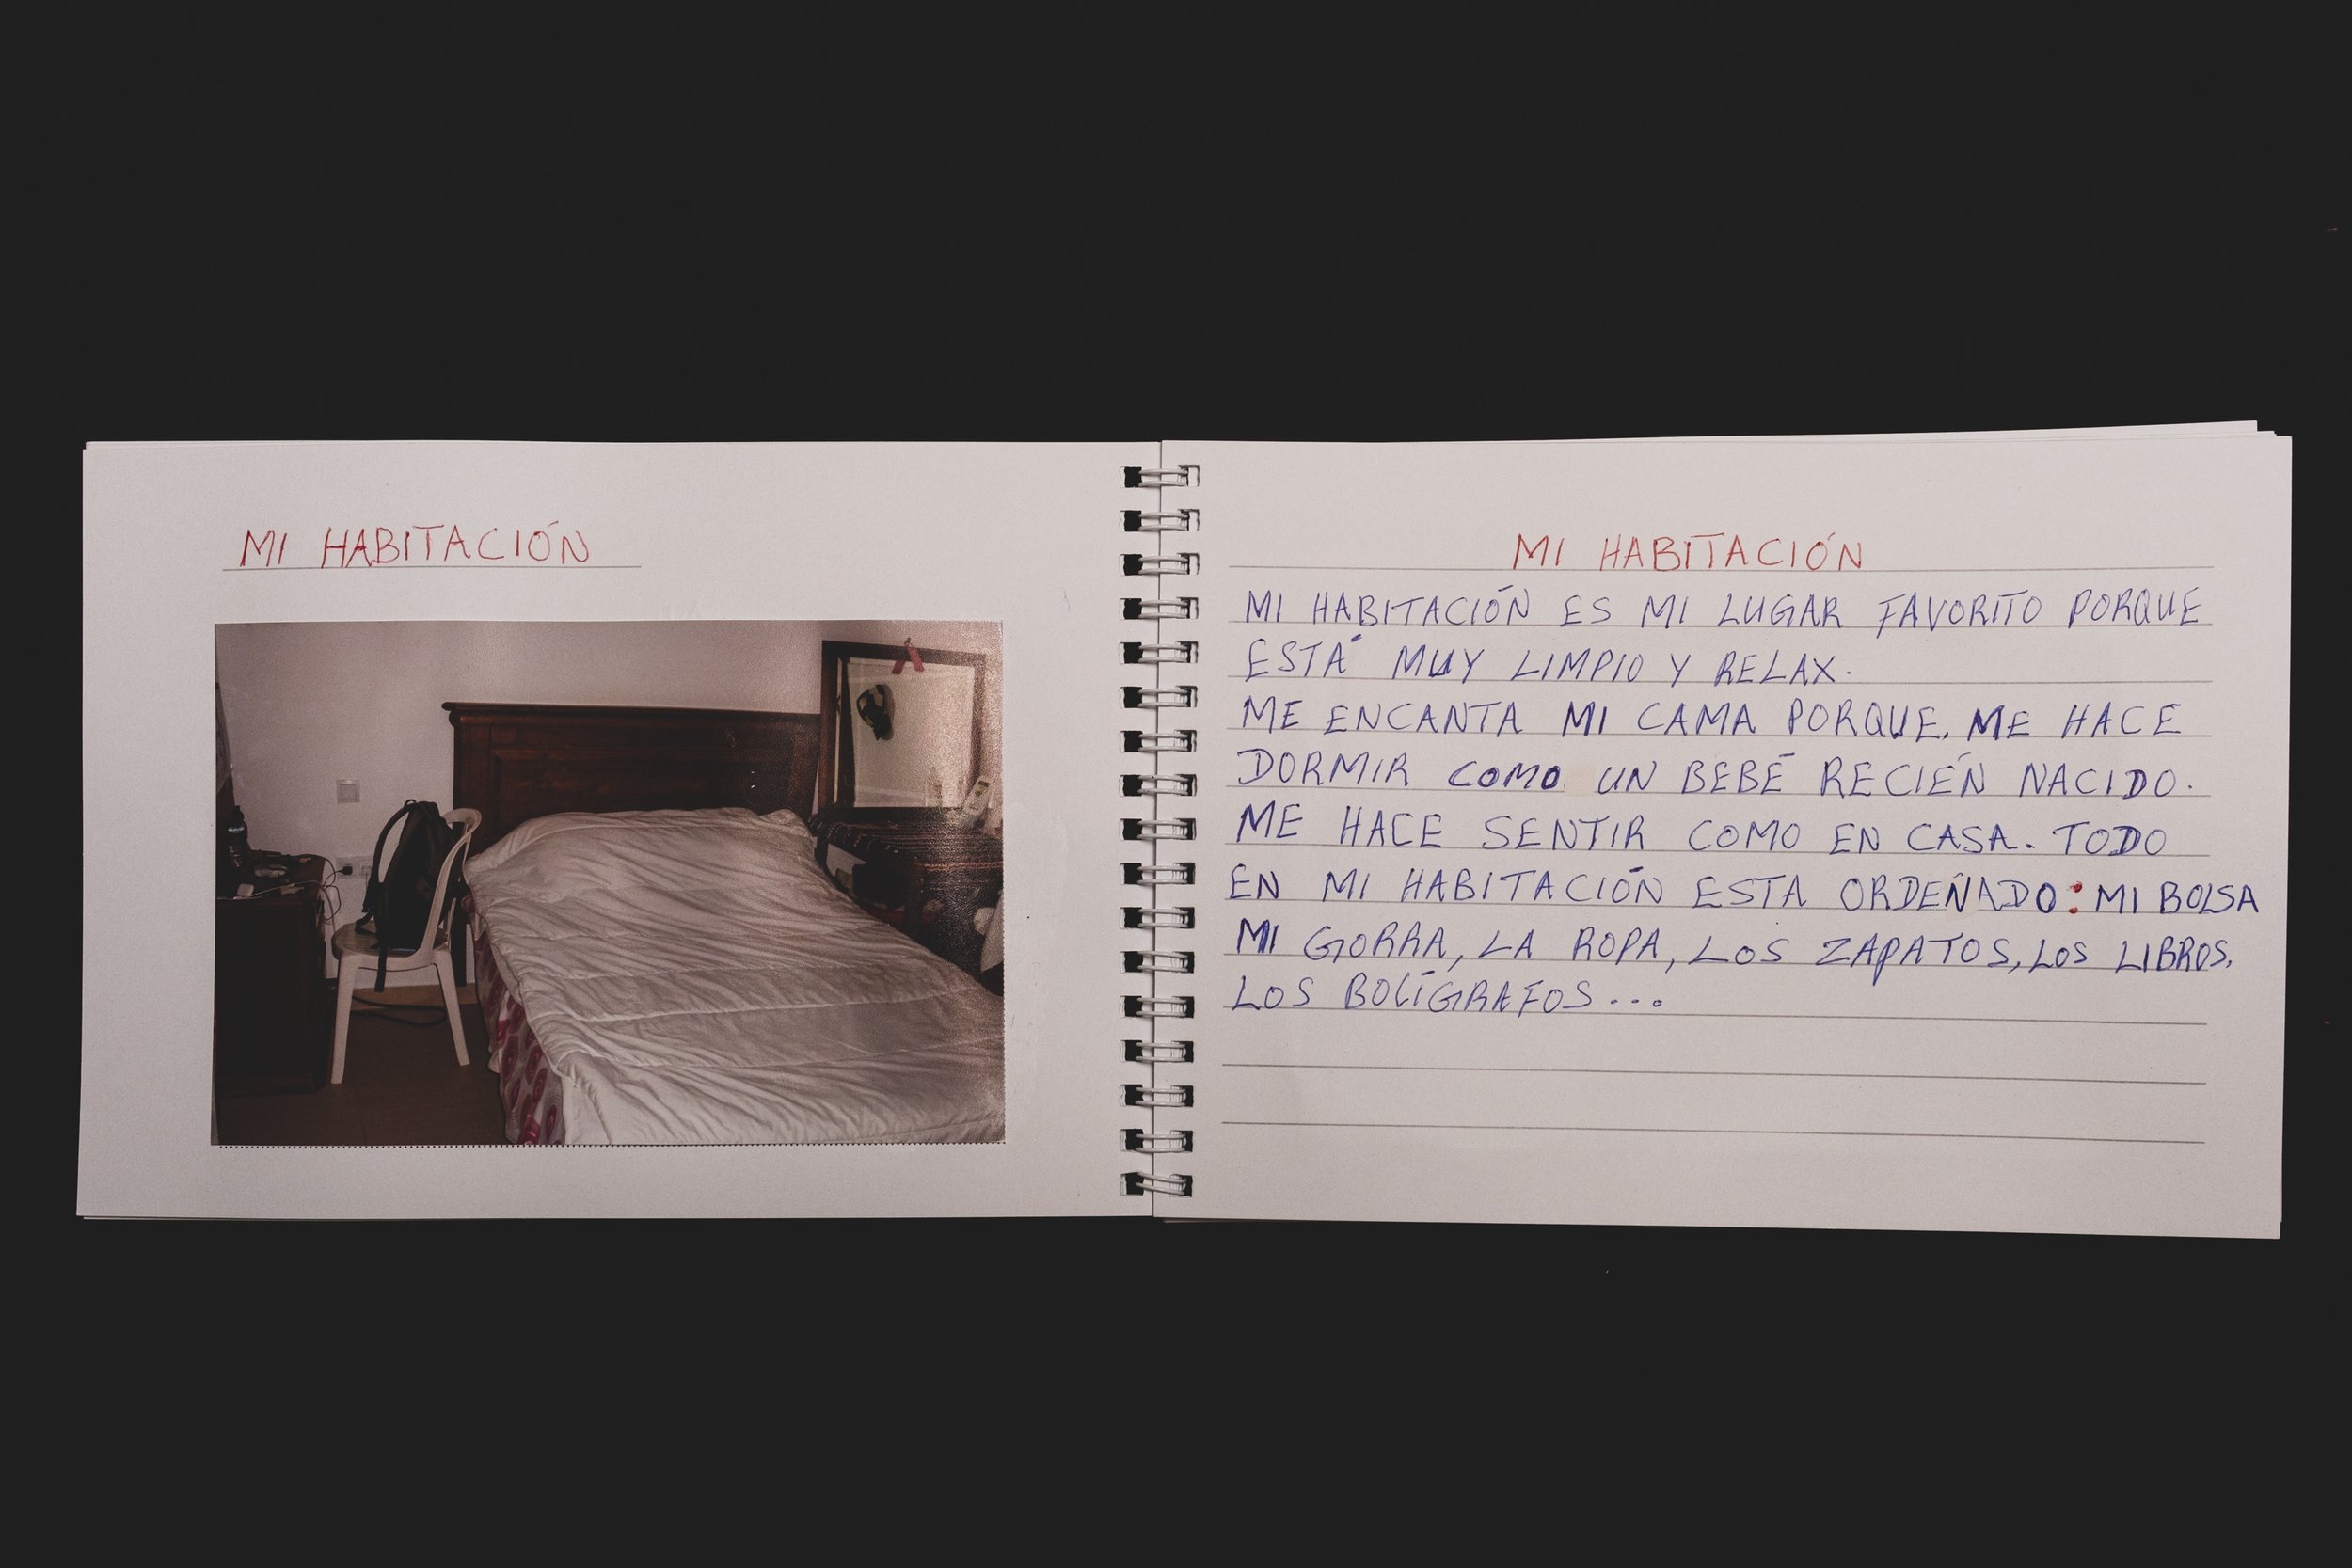 MI HABITACIÓN
MI HABITACIÓN
MI HABITACIÓN ES MI LUGAR FAVORITO PORQUE
ESTÁ MUY LIMPIO Y RELAX.
ME ENCANTA MI CAMA PORQUE. ME HACE
DORMIR COMO UN BEBÉ RECIÉN NACIDO.
ME HACE SENTIR COMO EN CASA. TODO
EN MI HABITACIÓN ESTA ORDEÑADO: MI BOLSA
MI GORRA, LA ROPA, LOS ZAPATOS, LOS LIBROS,
LOS BOLÍGRAFOS...